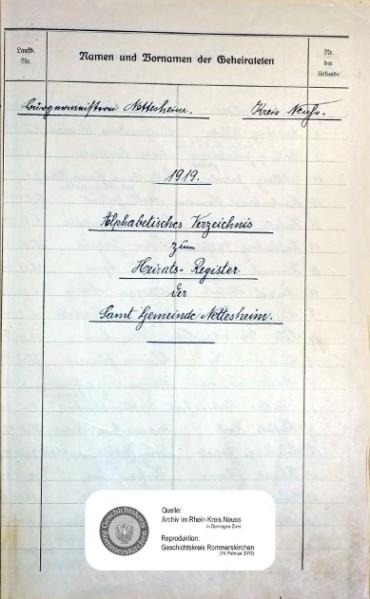 Laufd. Nr.
Namen und Vornamen der Geheirateten
Nr. der Urkunde
Bürgermeisterei Nettesheim. Kreis Neuss.
1919.
Alphabetisches Verzeichnis
zum
Heirats-Register
der
Samt Gemeinde Nettesheim.
Geschichtskreis Rommerskirchen
Quelle:
Archiv im Rhein-Kreis Neuss
in Dormagen-Zons
Reproduktion:
Geschichtskreis Rommerskirchen